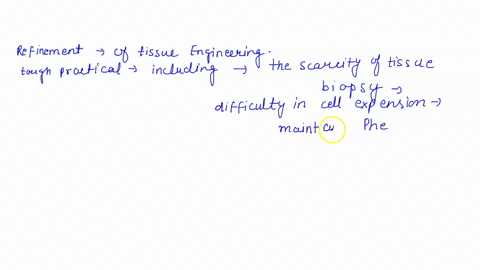 Refinement → of tissue Engineering.
tough practical → including → the scarcity of tissue
biopsy →
difficulty in cell expension →
maint cu Phe